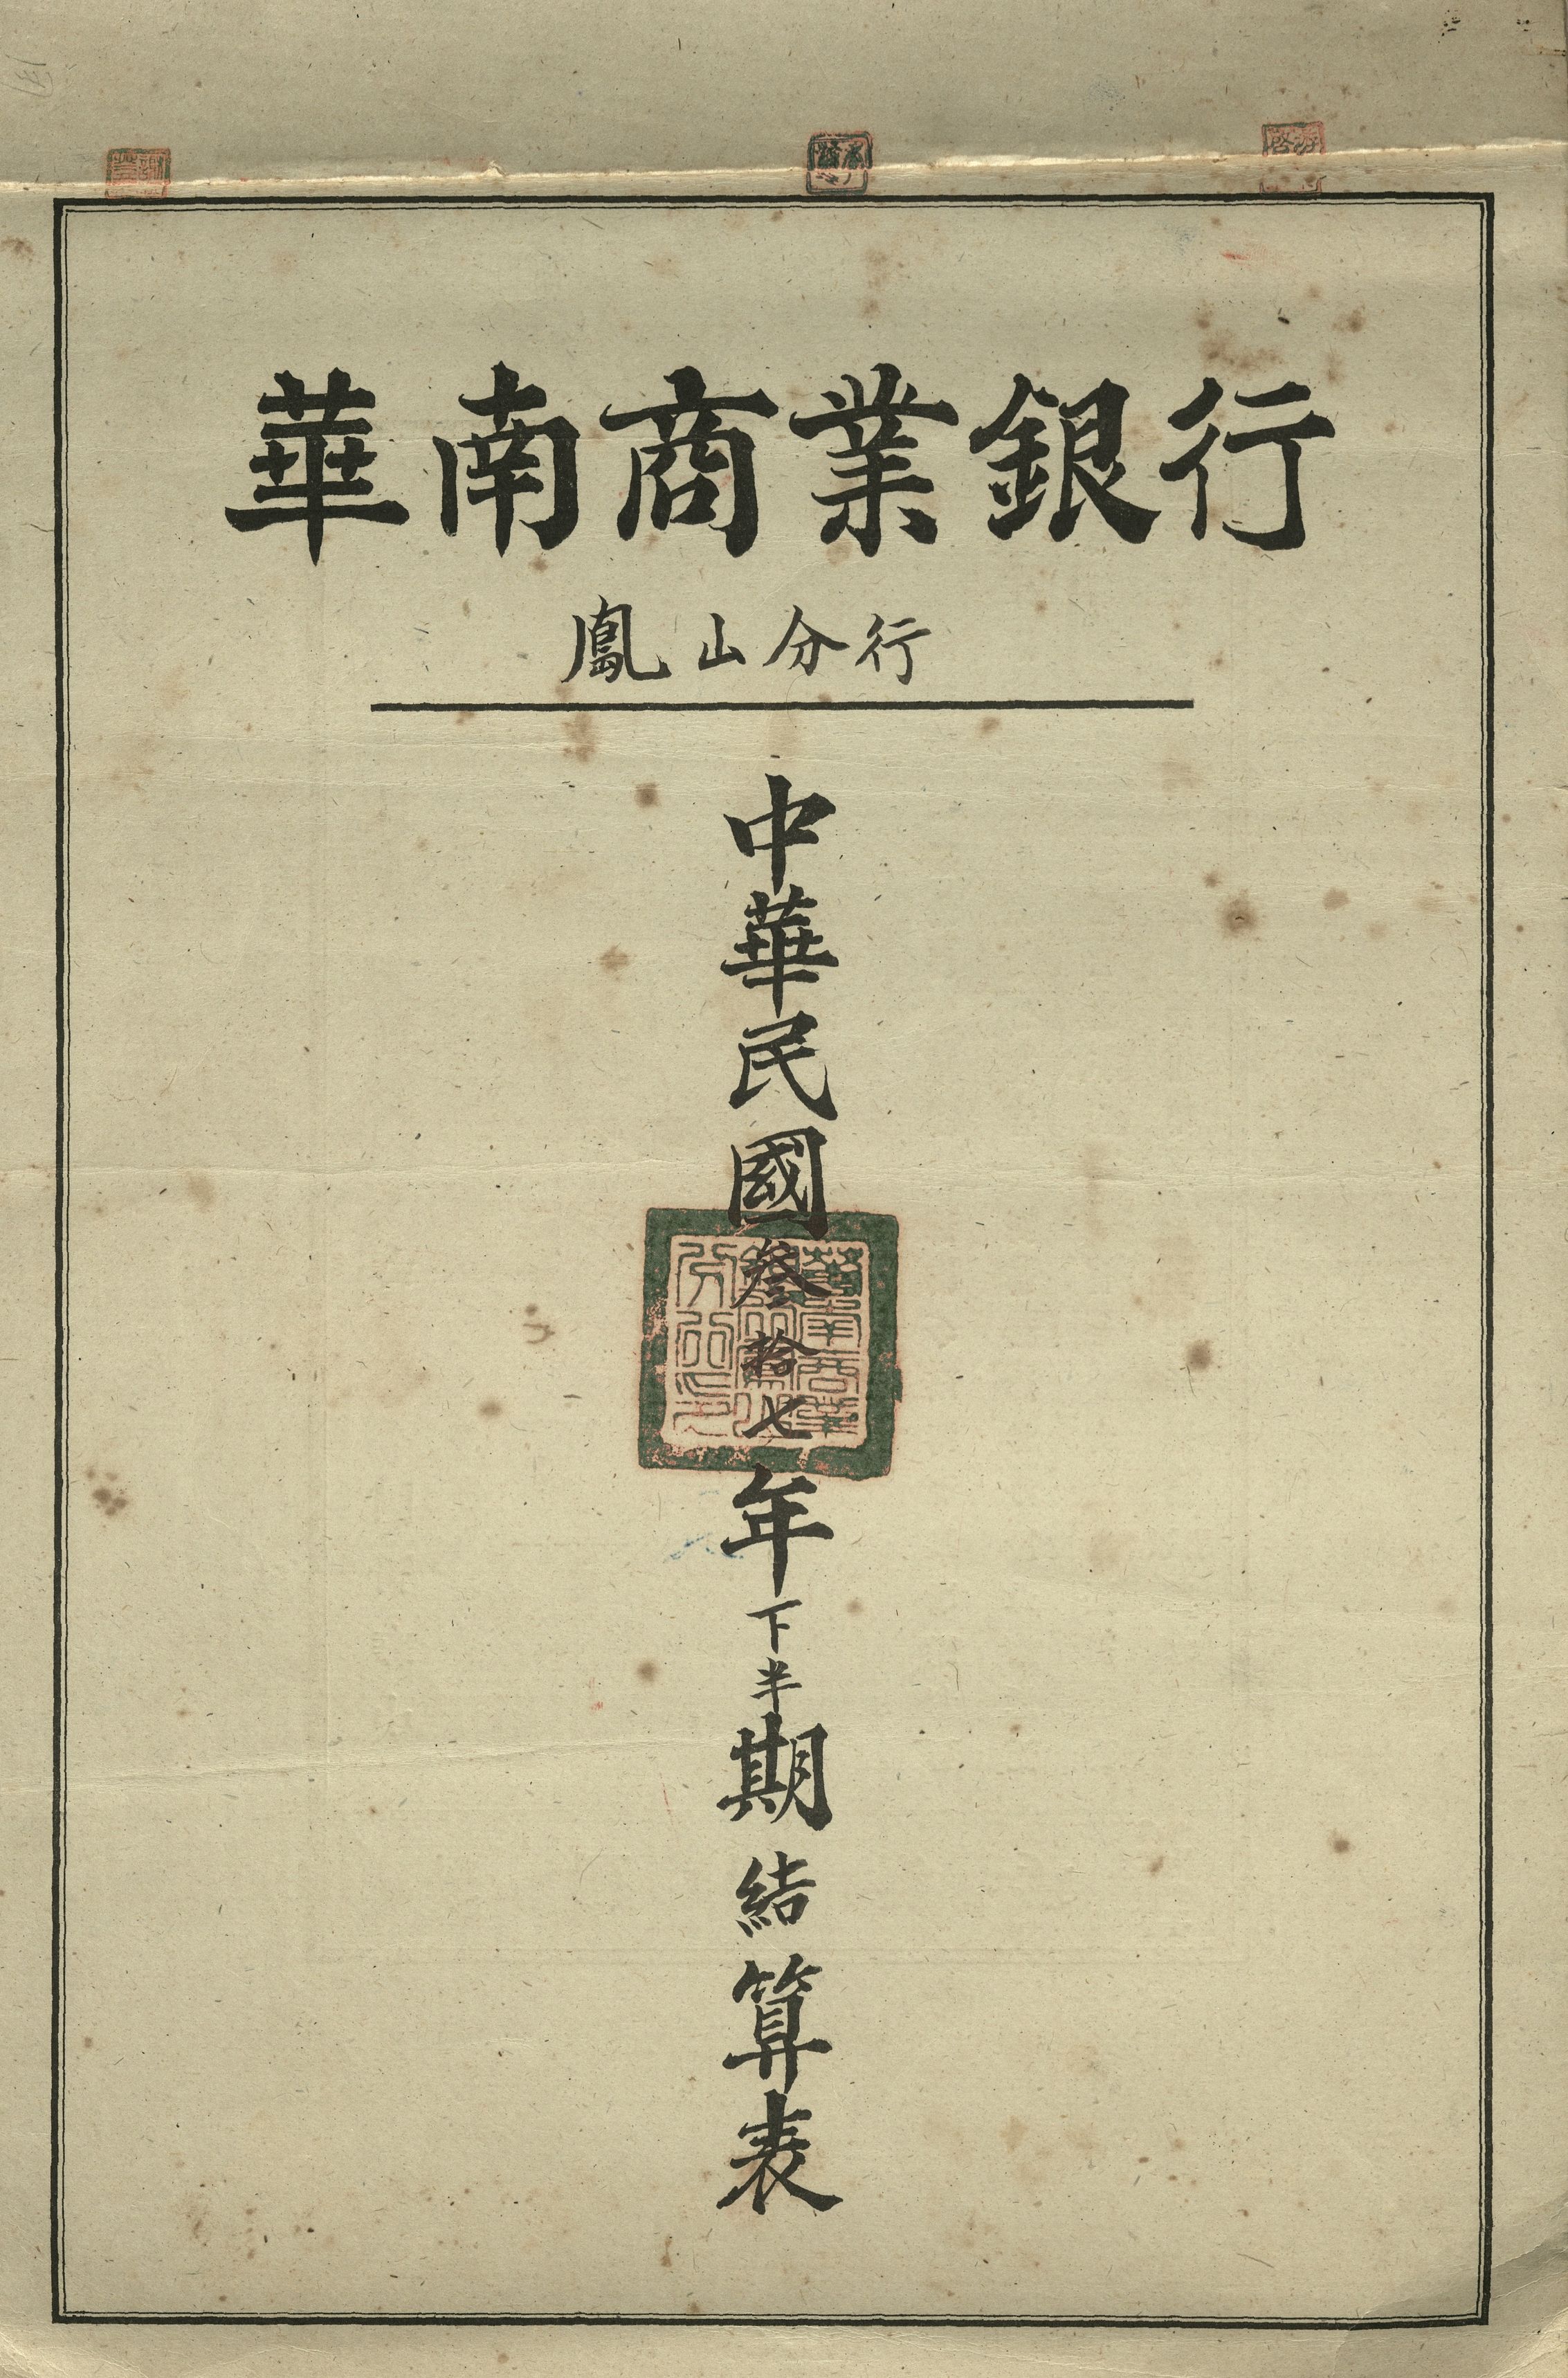 華南商業銀行
鳳山分行
中華民國叁拾七年下半期結算表